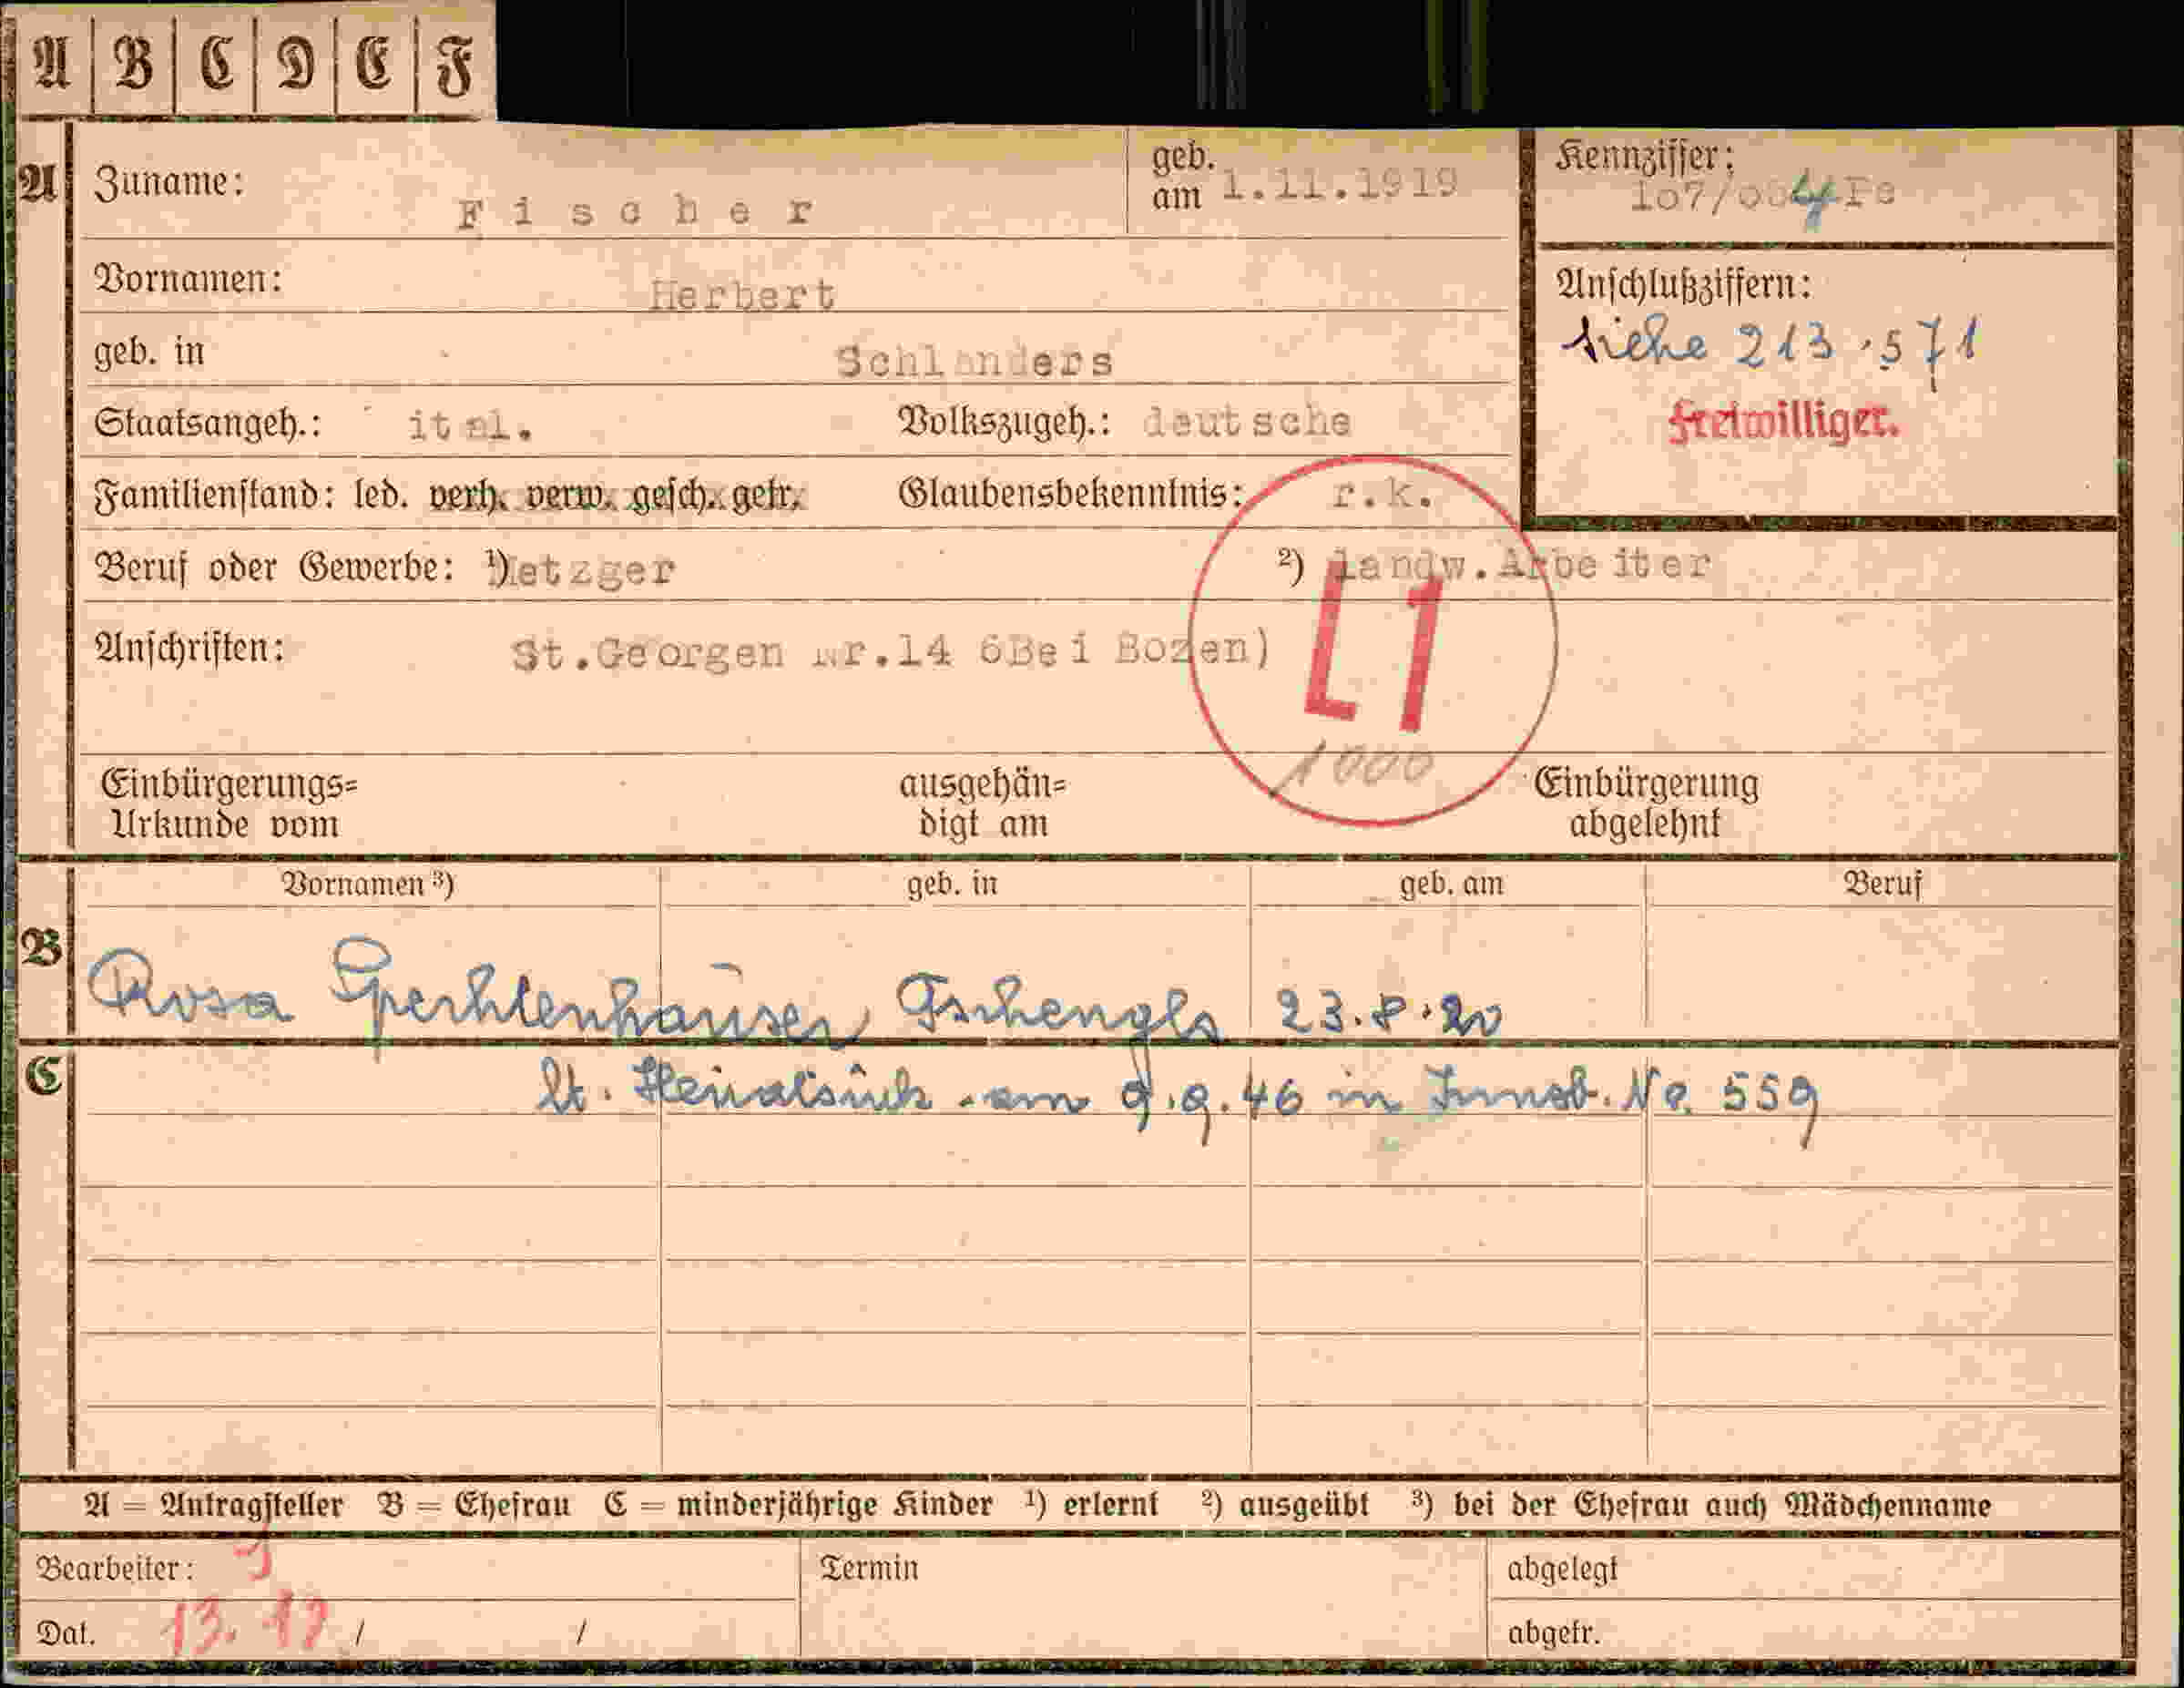 A B C D E F
A Zuname: Fischer geb. am 1.11.1919
Kennziffer:
Vornamen: Herbert
Anschlußziffern:
siehe 213.571
freiwilliger.
geb. in Schlanders
Staatsangeh.: ital. Volkszugeh.: deutsche
Familienstand: led. verh. verw. gesch. getr. Glaubensbekenntnis: r.k.
Beruf oder Gewerbe: 1) Metzger 2) landw.Arbeiter
Anschriften: St.Georgen Nr.14 6Bei Bozen)
L1
1000
Einbürgerungs=
Urkunde vom
ausgehän=
digt am
Einbürgerung
abgelehnt
Vornamen 3) geb. in geb. am Beruf
B Rosa Tschengls 23.8.20
C
lt. am 9.9.46 in Innsb. No. 559
A = Antragsteller B = Ehefrau C = minderjährige Kinder 1) erlernt 2) ausgeübt 3) bei der Ehefrau auch Mädchenname
Bearbeiter: Termin abgelegt
Dat. 13. 12 / / abgetr.